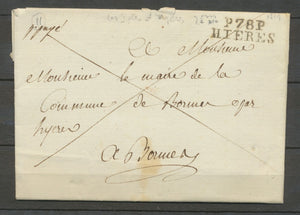 P.78.P
HYERES
pressé
A Monsieur
Monsieur le maire de la
Commune de Bormes par
hyeres
a Bormes